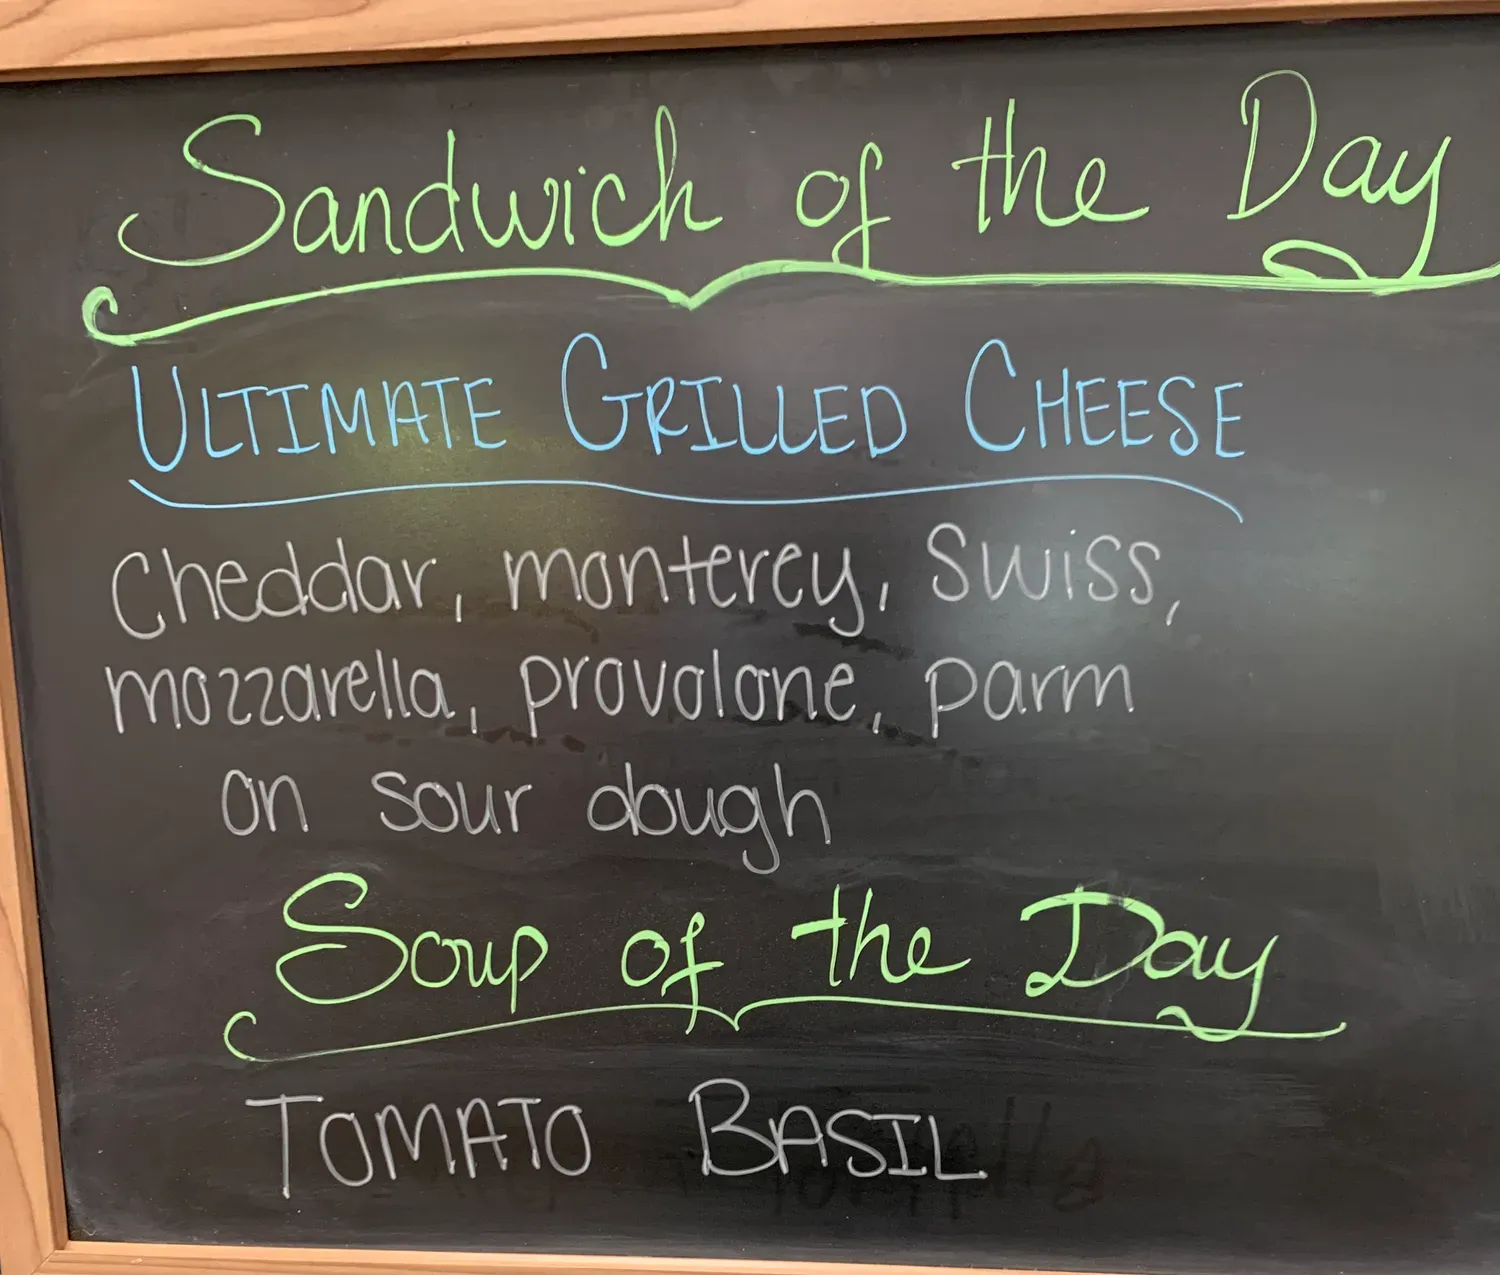 Sandwich of the Day
ULTIMATE GRILLED CHEESE
Cheddar, monterey, Swiss,
mozzarella, provolone, parm
on sour dough
Soup of the Day
TOMATO BASIL